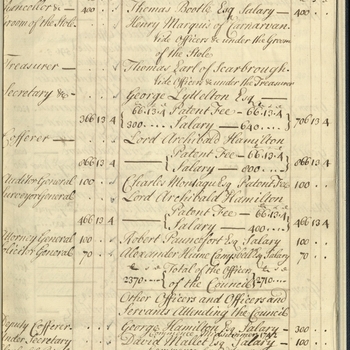 Chancellor & — 400 Thomas Bootle Esq Salary — 400
Groom of the Stole Henry Marquis of Carnarvan
vide Officers & under the Groom
of the Stole
Treasurer — Thomas Earl of Scarbrough
vide Officers & under the Treasurer
Secretary &c George Lyttelton Esq —
366 13 4 66.13.4 Patent Fee — 66.13.4 706 13 4
300 Salary — 640
Cofferer — Lord Archibald Hamilton
866 13 4 Patent Fee — 66.13.4 866 13 4
Salary — 800
Auditor General 100 Charles Montagu Esq Patent Fee 100
Surveyor General Lord Archibald Hamilton
466 13 4 Patent Fee — 66.13.4 466 13 4
Salary — 400
Attorney General 100 Robert Pauncefort Esq Salary 100
Solicitor General 70 Alexander Hume Campbell Esq Salary 70
Total of the Officers
2370 of the Council 2710
Other Officers and Officers and
Servants Attending the Council
Deputy Cofferer George Hamilton Esq Salary — 300
Under Secretary David Mallet Esq Salary — 100